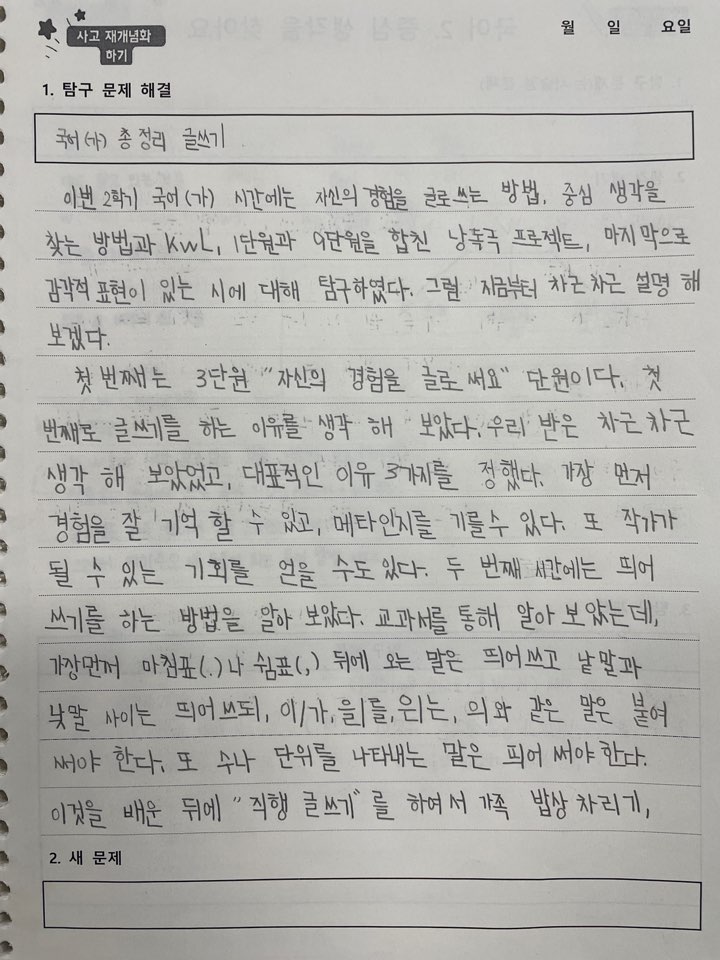 사고 재개념화
하기
월 일 요일
1. 탐구 문제 해결
국어(가) 총정리 글쓰기
이번 2학기 국어(가) 시간에는 자신의 경험을 글로 쓰는 방법, 중심 생각을
찾는 방법과 KWL, 1단원과 9단원을 합친 낭독극 프로젝트, 마지막으로
감각적 표현이 있는 시에 대해 탐구하였다. 그럼 지금부터 차근차근 설명 해
보겠다.
첫 번째는 3단원 "자신의 경험을 글로 써요" 단원이다. 첫
번째로 글쓰기를 하는 이유를 생각 해 보았다. 우리 반은 차근차근
생각 해 보았었고, 대표적인 이유 3가지를 정했다. 가장 먼저
경험을 잘 기억 할 수 있고, 메타인지를 기를수 있다. 또 작가가
될 수 있는 기회를 얻을 수도 있다. 두 번째 시간에는 띄어
쓰기를 하는 방법을 알아 보았다. 교과서를 통해 알아 보았는데,
가장먼저 마침표(.)나 쉼표(,) 뒤에 오는 말은 띄어쓰고 낱말과
낮말 사이는 띄어쓰되, 이/가, 을/를, 은/는, 의와 같은 말은 붙여
써야 한다. 또 수나 단위를 나타내는 말은 띄어 써야한다.
이것을 배운 뒤에 "직행 글쓰기"를 하여서 가족 밥상 차리기,
2. 새 문제